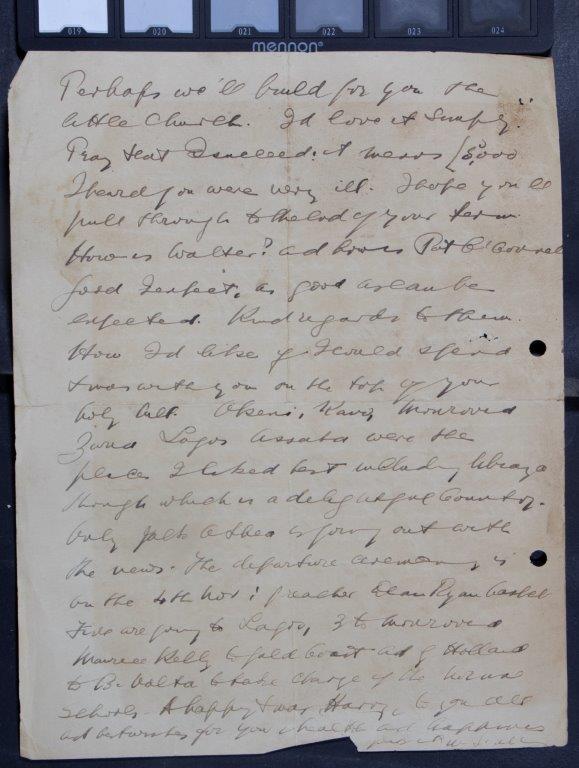 019 020 021 022 023 024
mennon®
Perhaps we'll build for you the
little Church. I'd love it simply.
Pray that I succeed. it means £5,000
I heard you were very ill. I hope you'll
pull through to the end of your term.
How is Walter? and how is Pat O'Connell
good I expect, as good as can be
expected. Kind regards to them.
How I'd like if I could spend
Xmas with you on the top of your
holy hill. Okeni, Monrovia
Lagos Assaba were the
places I liked best including
though which is a delightful Country.
Only is going out with
the news. The departure ceremony is
on the 4th Nov: preacher Dean Ryan Cashel
Five are going to Lagos, 3 to Monrovia
Maurice Kelly to Gold Coast and Holland
to B. Volta to take charge of the
schools. A happy Xmas Harry, to you all
and best wishes for your health and happiness